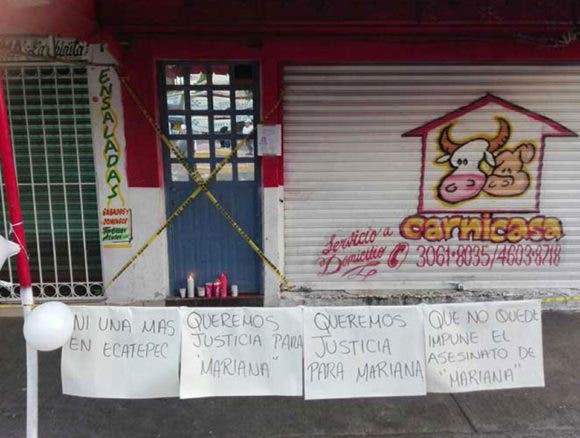 ENSALADAS
SABADOS Y
DOMINGOS
carnicasa
Servicio a
Domicilio
3061-8035/4603-8718
NI UNA MAS
EN ECATEPEC
QUEREMOS
JUSTICIA PARA
"MARIANA"
QUEREMOS
JUSTICIA
PARA MARIANA
QUE NO QUEDE
IMPUNE EL
ASESINATO DE
"MARIANA"